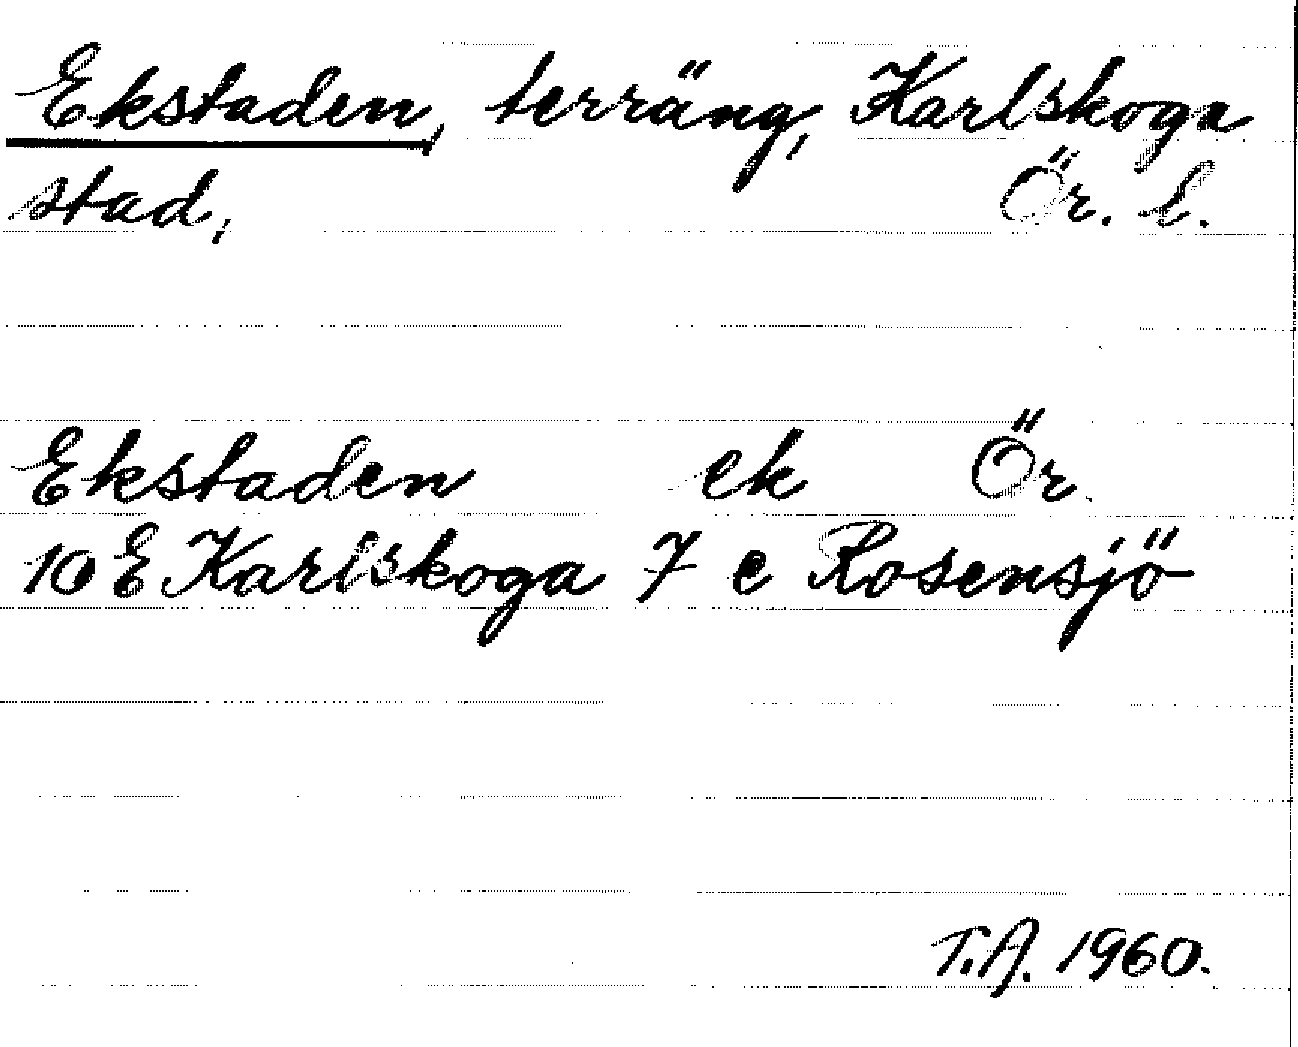 Ekstaden, terräng, Karlskoga
stad, Ör. l.
Ekstaden ek Ör
10 E Karlskoga 7 c Rosensjö
T.A. 1960.